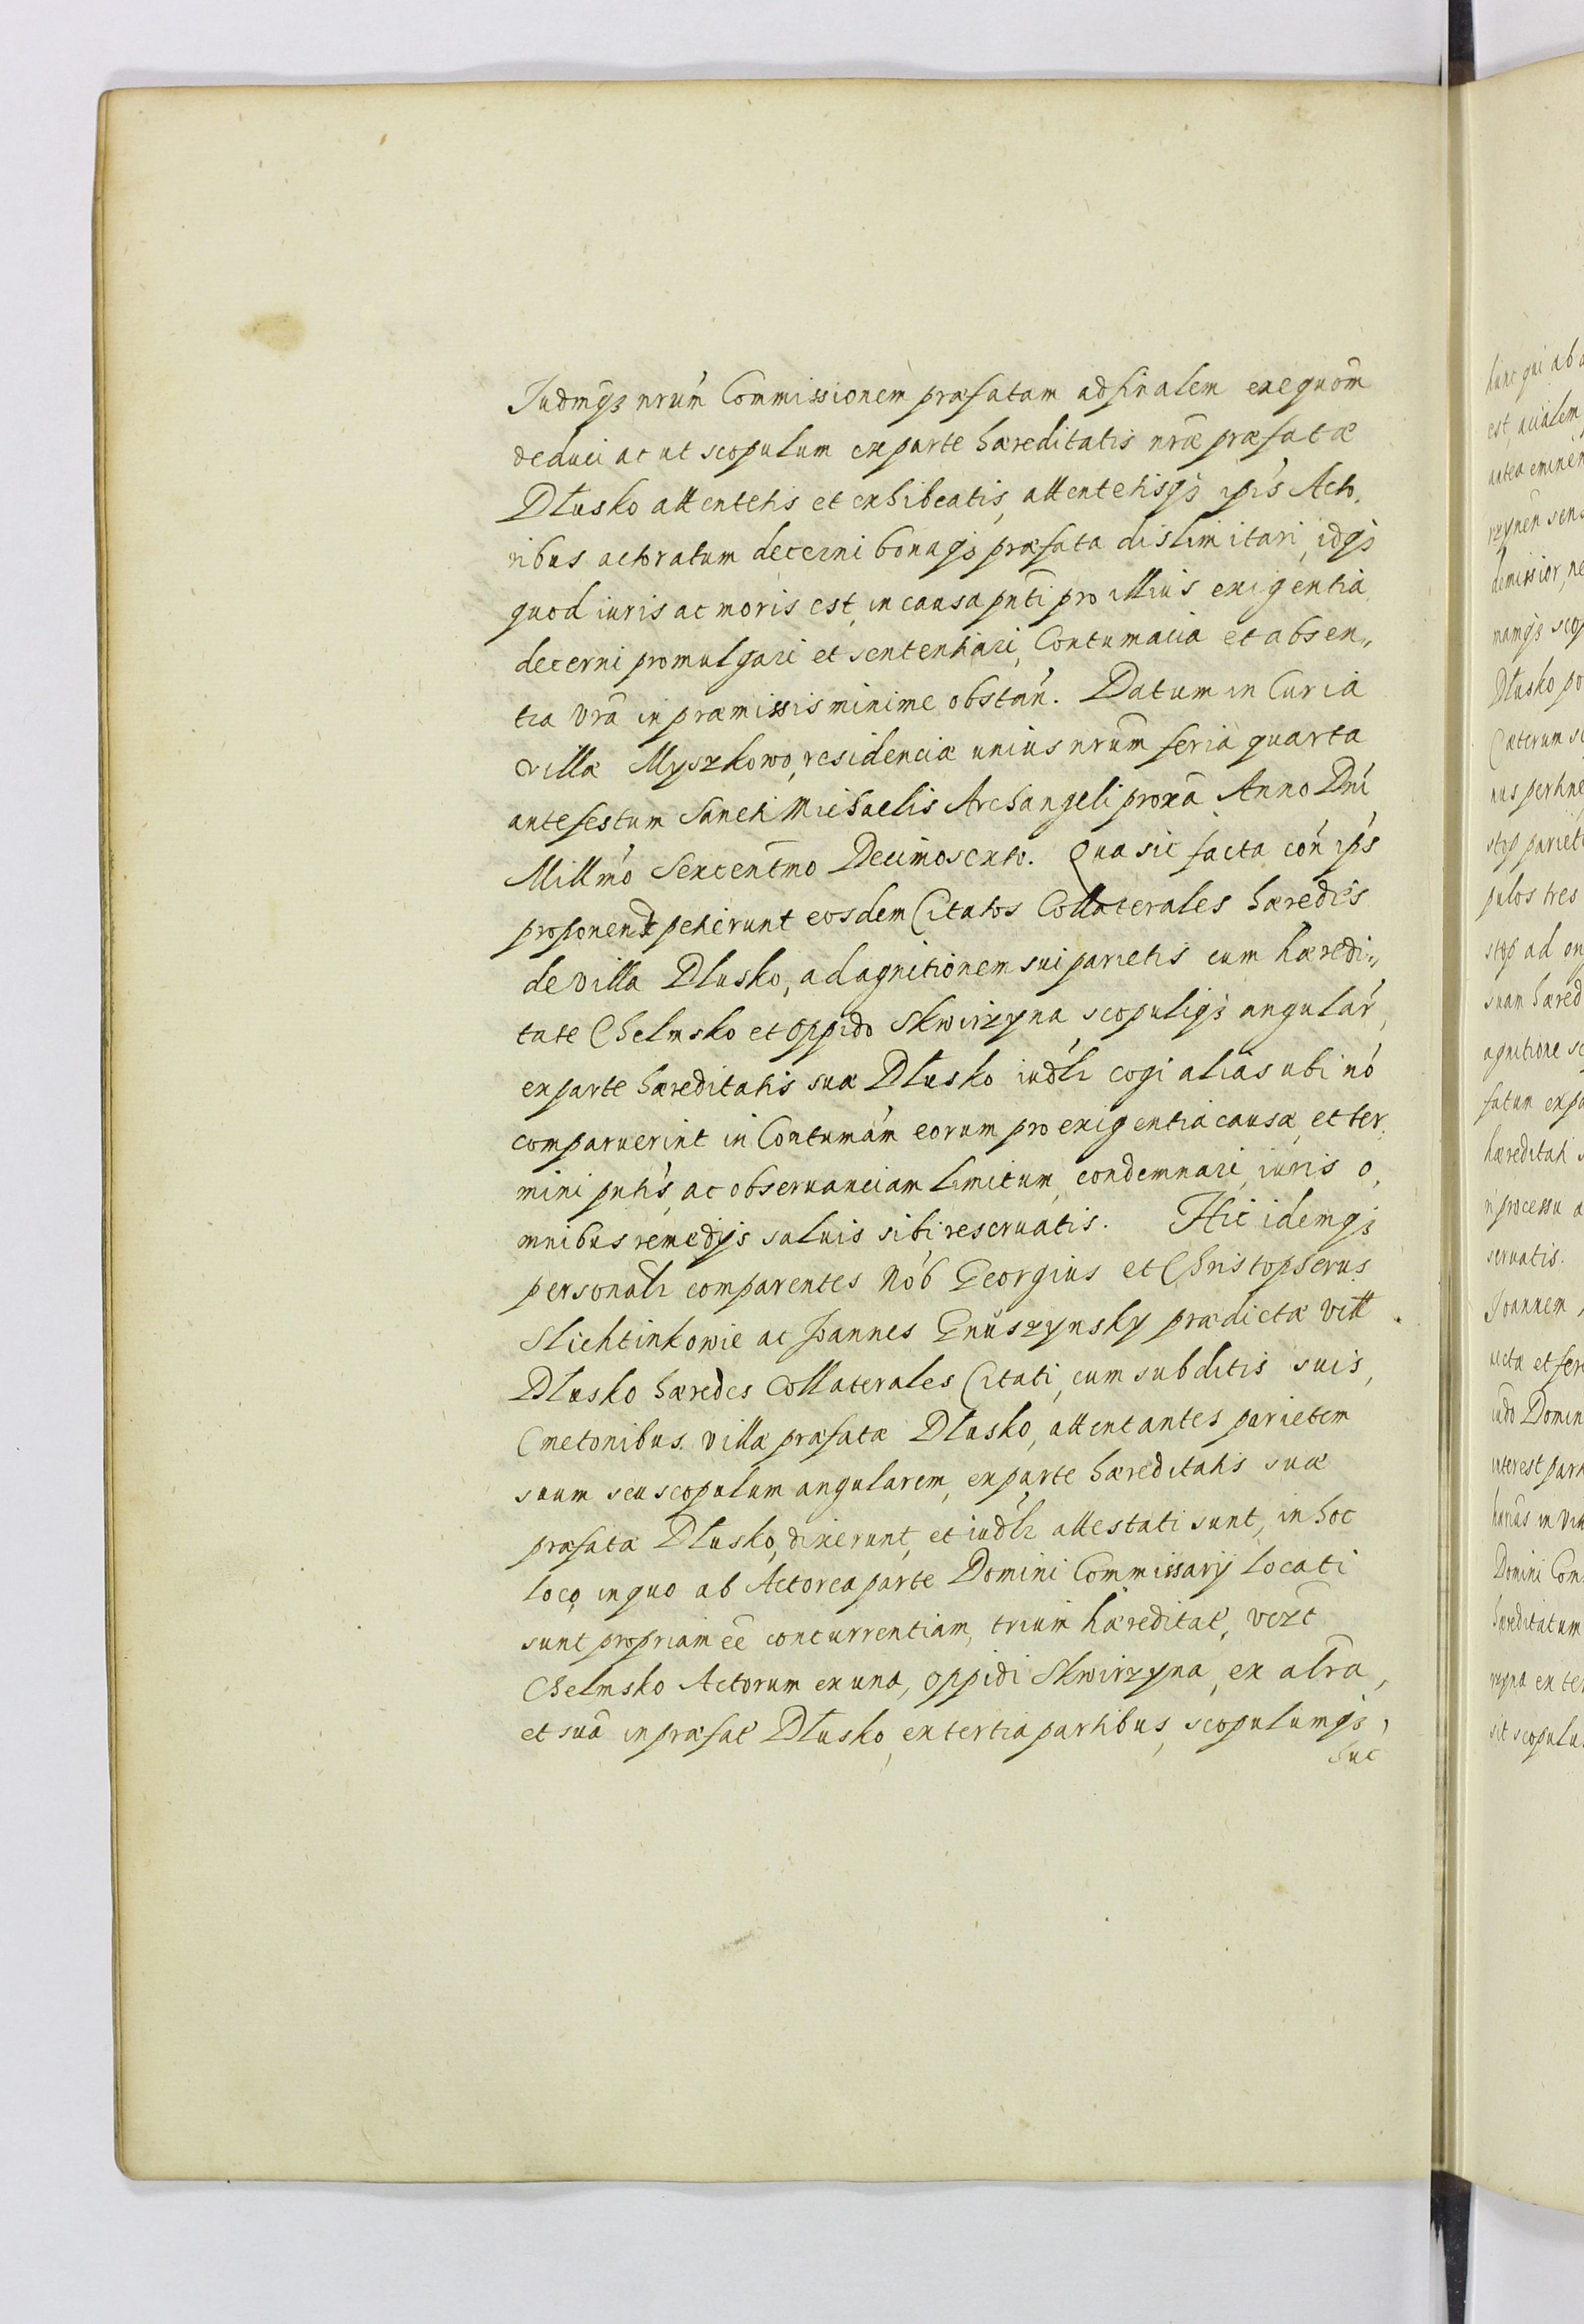 Iudmq3 nrum Commissionem præfatam ad finalem exequom̄
deduci ac ut scopulum ex parte hæreditatis nræ præfatæ
Dłusko attentetis et exhibeatis, attentetisq3 ip̄is Acto,
ribus actoratum decerni bonaq3 præfata dislimitari, idq3
quod iuris ac moris est, in causa pnt̄i pro illius exigentia
decerni promulgari et sententiari, Contumacia et absen„
tia vrā in præmissis minime obstań. Datum in Curia
villæ Myszkowo, residenciæ unius nrum̄ feria quarta
ante festum Sancti Michaelis Archangeli proxā Anno Dnī
Millmō Sexcentm̄o Decimosexto. Qua sic facta coń ip̄s
proponend petierunt eosdem Citatos Collaterales hæredēs
de villa Dlusko, ad agnitionem sui parietis cum hæredi„
tate Chelmsko et oppido Skwirzyna, scopuliq3 angulaŕ,
ex parte hæreditatis suæ Dłusko iudlr cogi alias ubi nō
comparuerint in Contumaḿ eorum pro exigentia causæ, et ter,
mini pntis, ac obseruanciam limitum, condemnari, iuris o,
mnibus remedijs saluis sibi reseruatis. Hic idemq3
personalr comparentes Nob́ Georgius et Christopherus
Slichtinkowie ac Joannes Gnuszynsky prædictæ vill
Dlusko hæredes Collaterales Citati, cum subditis suis,
Cmetonibus villæ præfatæ Dłusko, attentantes parietem
suum seu scopulum angularem, ex parte hæreditatis suæ
præfatæ Dłusko, dixerunt, et iudlr attestati sunt, in hoc
loco, in quo ab Actorea parte Domini Commissarij locati
sunt propriam eē concurrentiam, trium hæreditat́, vezt
Chelmsko Actorum ex una, oppidi Skwirzyna, ex alrā,
et suā in præfat́ Dłusko, ex tertia partibus, scopulumq3,
huc